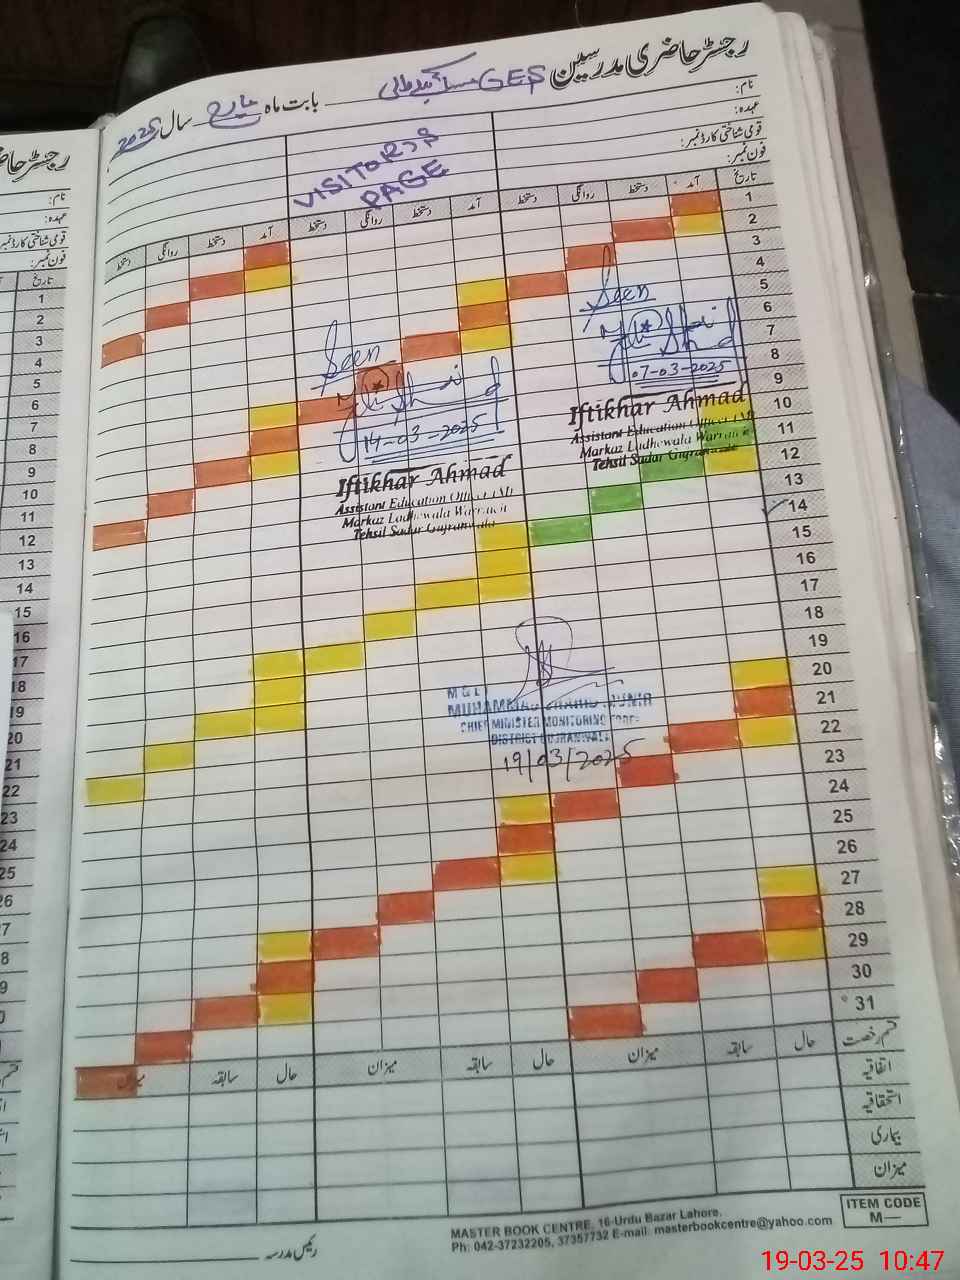 رجسٹر حاضری مدرسین GES بابت ماہ مارچ سال 2025
نام:
عہدہ:
قومی شناختی کارڈ نمبر:
فون نمبر:
VISITOR,S
PAGE
تاریخ آمد دستخط روانگی دستخط آمد دستخط روانگی دستخط آمد دستخط روانگی دستخط
1
2
3
4
5
6
7
8
9
10
11
12
13
14
15
16
17
18
19
20
21
22
23
24
25
26
27
28
29
30
31
Seen
07-03-2025
Iftikhar Ahmad
Assistant Education Officer (M)
Markaz Ladhewala Warraich
Tehsil Sadar Gujranwala
Seen
14-03-2025
Iftikhar Ahmad
Assistant Education Officer (M)
Markaz Ladhewala Warraich
Tehsil Sadar Gujranwala
MUHAMMAD SHAHID MUNIR
CHIEF MINISTER MONITORING FORCE
DISTRICT GUJRANWALA
19/03/2025
قسم رخصت حال سابقہ میزان حال سابقہ میزان حال سابقہ میزان
اتفاقیہ
استحقاقیہ
بیماری
میزان
رئیس مدرسہ
MASTER BOOK CENTRE, 16-Urdu Bazar Lahore.
Ph: 042-37232205, 37357732 E-mail: masterbookcentre@yahoo.com
ITEM CODE
M—
رجسٹر حاضری
نام:
عہدہ:
قومی شناختی کارڈ نمبر:
فون نمبر:
تاریخ
1
2
3
4
5
6
7
8
9
10
11
12
13
14
15
16
17
18
19
20
21
22
23
24
25
26
19-03-25 10:47